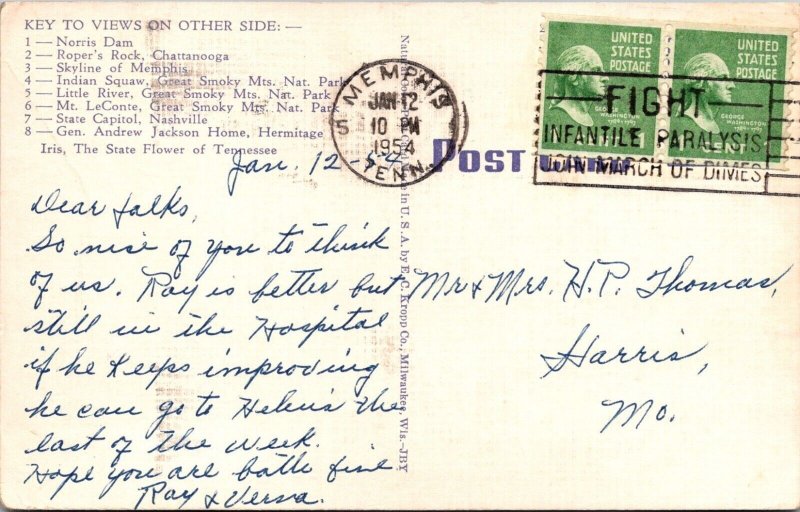 KEY TO VIEWS ON OTHER SIDE: —
1 — Norris Dam
2 — Roper's Rock, Chattanooga
3 — Skyline of Memphis
4 — Indian Squaw, Great Smoky Mts. Nat. Park
5 — Little River, Great Smoky Mts. Nat. Park
6 — Mt. LeConte, Great Smoky Mts. Nat. Park
7 — State Capitol, Nashville
8 — Gen. Andrew Jackson Home, Hermitage
Iris, The State Flower of Tennessee
MEMPHIS
5
JAN 12
10 PM
1954
TENN.
UNITED
STATES
POSTAGE
GEORGE
WASHINGTON
UNITED
STATES
POSTAGE
GEORGE
WASHINGTON
FIGHT
INFANTILE PARALYSIS
JOIN MARCH OF DIMES
POST
Jan. 12-54
Dear folks,
So nise of you to think
of us. Ray is better but
still in the Hospital
if he keeps improving
he can go to Helen's the
last of the week.
Hope you are bothe fine
Ray & Verna.
in U. S. A. by E. C. Kropp Co., Milwaukee, Wis.—JBY
Mr & Mrs. H. P. Thomas,
Harris,
Mo.